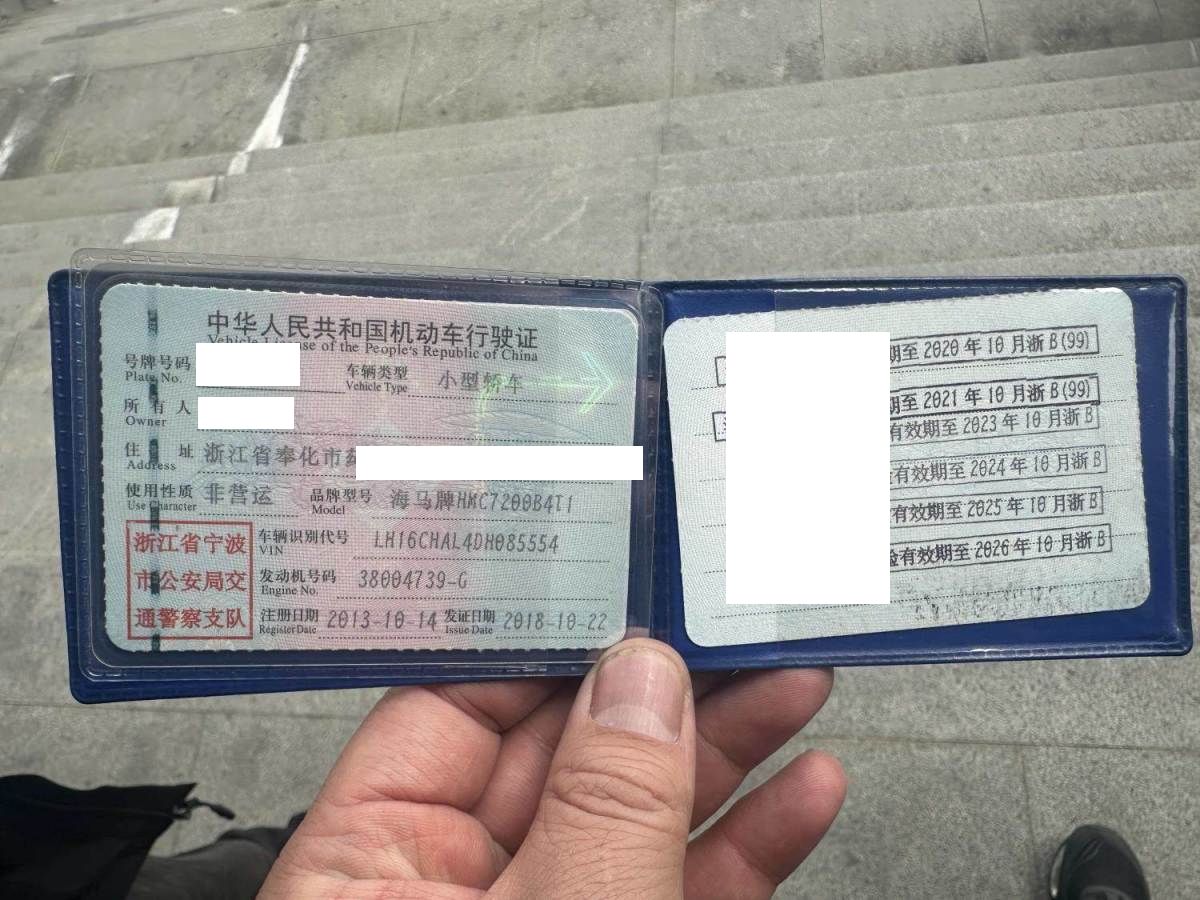 中华人民共和国机动车行驶证
Vehicle License of the People's Republic of China
号牌号码
Plate No.
车辆类型 小型轿车
Vehicle Type
所有人
Owner
住址 浙江省奉化市
Address
使用性质 非营运
Use Character
品牌型号 海马牌HMC7200B4T1
Model
浙江省宁波
市公安局交
通警察支队
车辆识别代号 LH16CHAL4DH085554
VIN
发动机号码 38004739-G
Engine No.
注册日期 2013-10-14
Register Date
发证日期 2018-10-22
Issue Date
期至 2020 年 10 月浙 B(99)
期至 2021 年 10 月浙 B(99)
有效期至 2023 年 10 月浙 B
有效期至 2024 年 10 月浙 B
有效期至 2025 年 10 月浙 B
验有效期至 2026 年 10 月浙 B